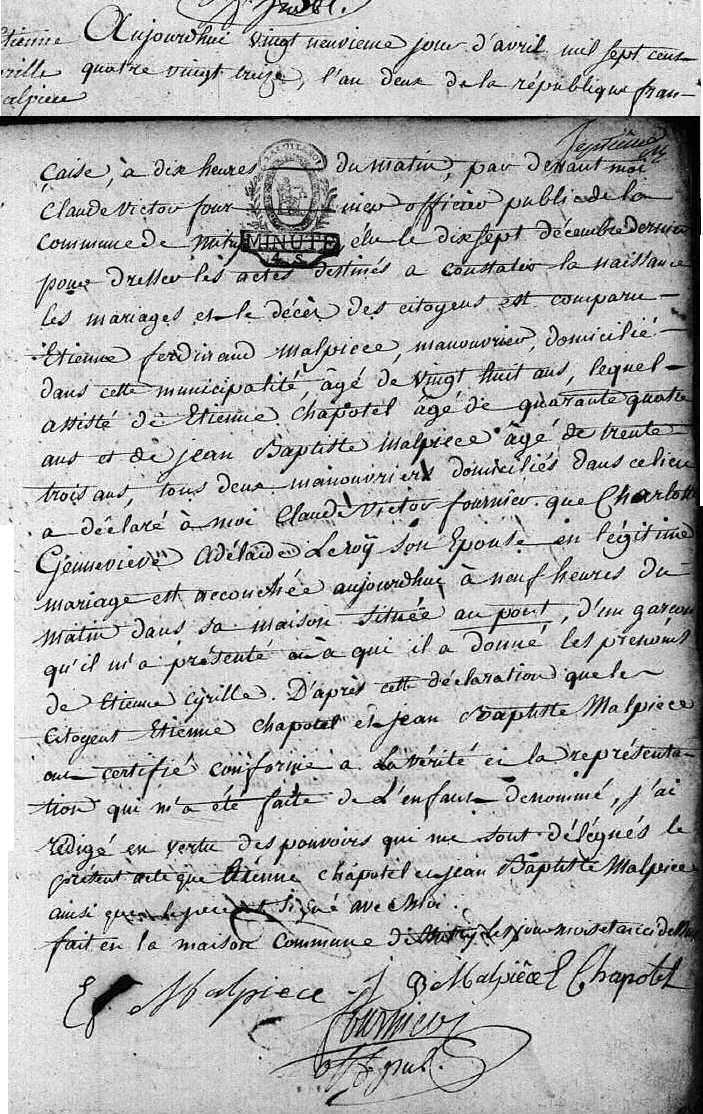 off. publ.
Etienne
Cyrille
Malpiece
Aujourdhui vingt neuvieme jour d'avril mil sept cent
quatre vingt treize, l'an deux de la république fran-
Septième
caise, à dix heures du matin, par devant moi
Claude Victor four nier officier public de la
Commune de élu le dix sept décembre dernier
MINUTE
4. S
pour dresser les actes destinés a constater la naissance
les mariages et le décès des citoyens est comparu
Etienne ferdinand Malpiece, manouvrier, domicilié
dans cette municipalité, âgé de vingt huit ans, lequel
assisté de Etienne Chapotel âgé de quarante quatre
ans et de jean Baptiste Malpiece âgé de trente
trois ans, tous deux manouvriers domiciliés dans ce lieu
a déclaré à moi Claude Victor fournier que Charlotte
Gennevieve Adélaïde Leroy son Epouse en légitime
mariage est accouchée aujourdhui à neuf heures du
matin dans sa maison située au pont, d'un garçon
qu'il m'a présenté et à qui il a donné les prénoms
de Etienne Cyrille. D'après cette déclaration que le
Citoyent Etienne Chapotel et jean Baptiste Malpiece
ont certifié conforme a la vérité et la représenta-
tion qui m'a été faite de L'enfant dénommé, j'ai
rédigé en vertu des pouvoirs qui me sont délégués le
présent acte que Etienne chapotel et jean Baptiste Malpiece
ainsi que le pere ont signé avec moi.
fait en la maison Commune de les jour mois et an ci dessus
E f Malpiece J B Malpièce E Chapotel
fournier
off. publ.